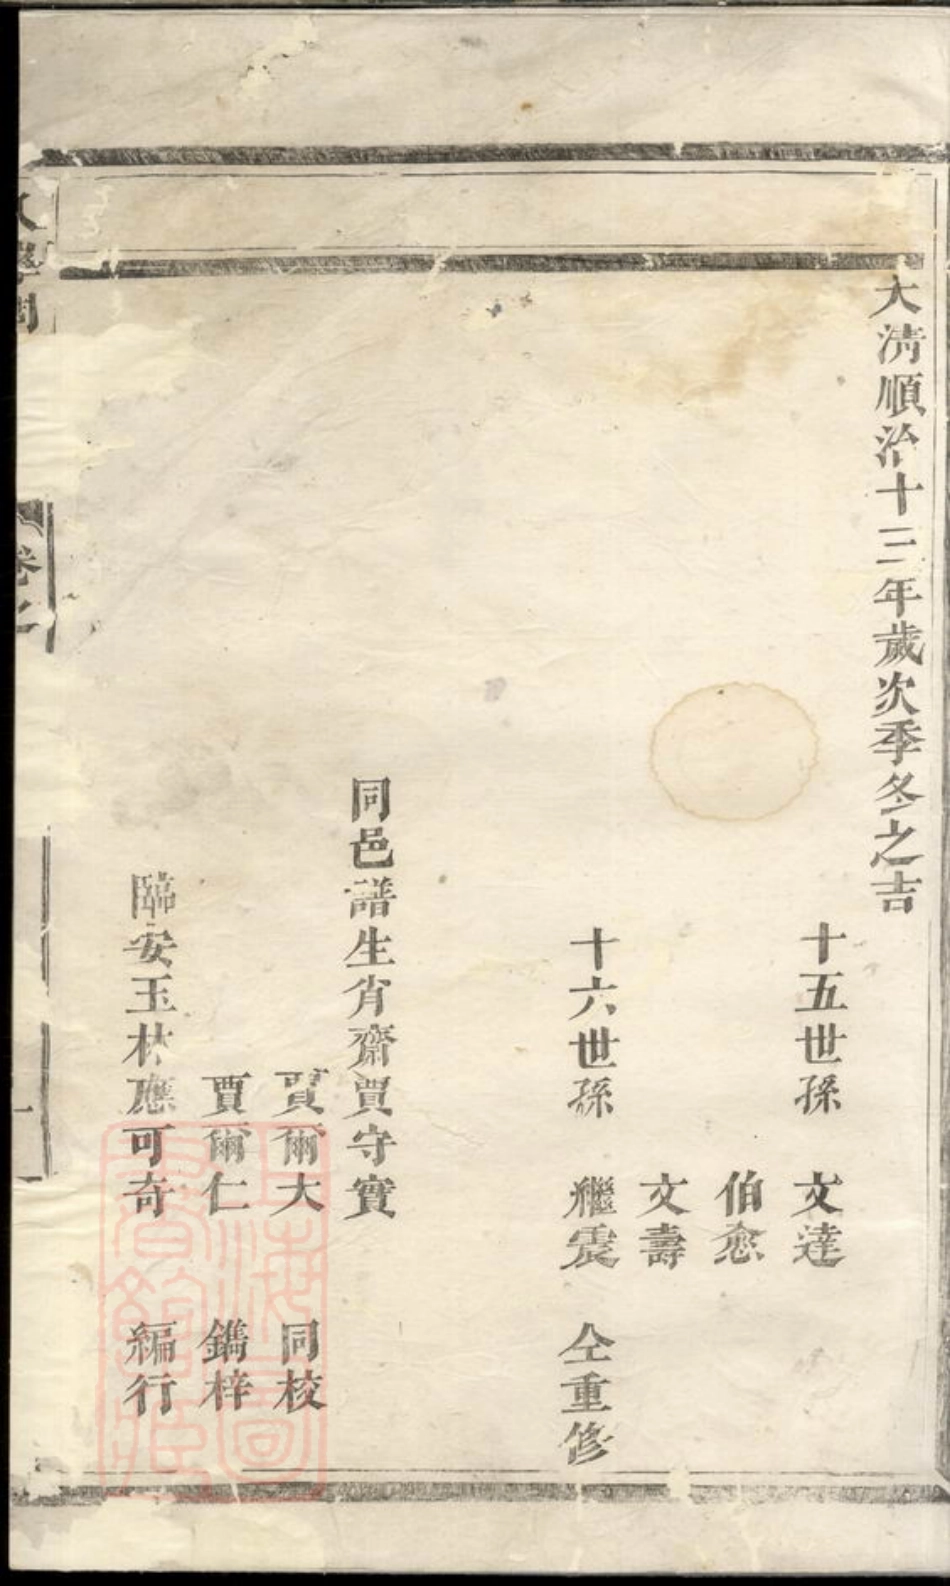 大淸順治十三年歲次季冬之吉
十五世孫 文達
伯愈
文壽
十六世孫 繼震 仝重修
同邑譜生肖齋賈守實
賈爾大 同校
賈爾仁 鐫梓
臨安玉林應可奇 編行
卷之
一
上海圖書館藏